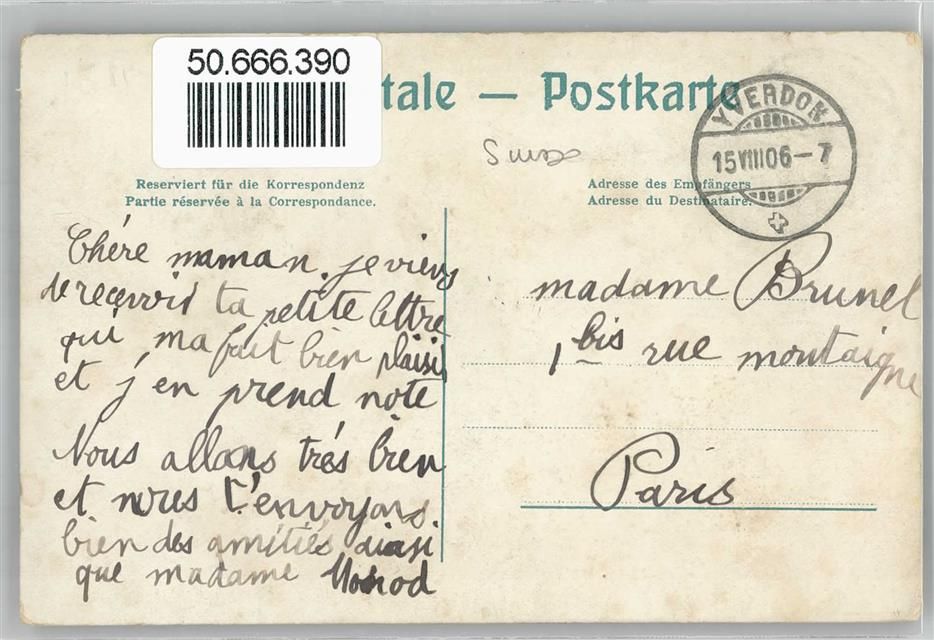 50.666.390
tale — Postkarte
YVERDON
15 VIII 06 – 7
Reserviert für die Korrespondenz
Partie réservée à la Correspondance.
Adresse des Empfängers
Adresse du Destinataire.
Chére maman. je viens
de recevoir ta petite lettre
qui ma fait bien plaisir
et j'en prend note
Nous allons trés bien
et nous t'envoyons
bien des amitiés ainsi
que madame Monod
madame Brunel
1 bis rue montaigne
Paris